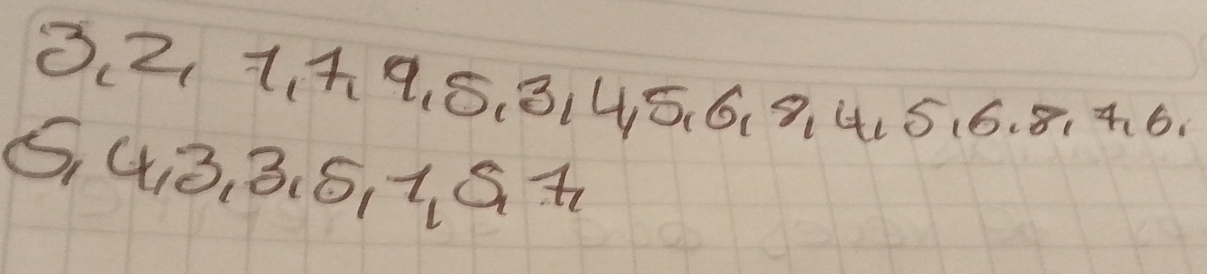 3, 2, 1, 7, 9, 5, 3, 4, 5, 6, 8, 4, 5, 6, 8, 7, 6,
5, 4, 3, 3, 5, 1, 5, 7,